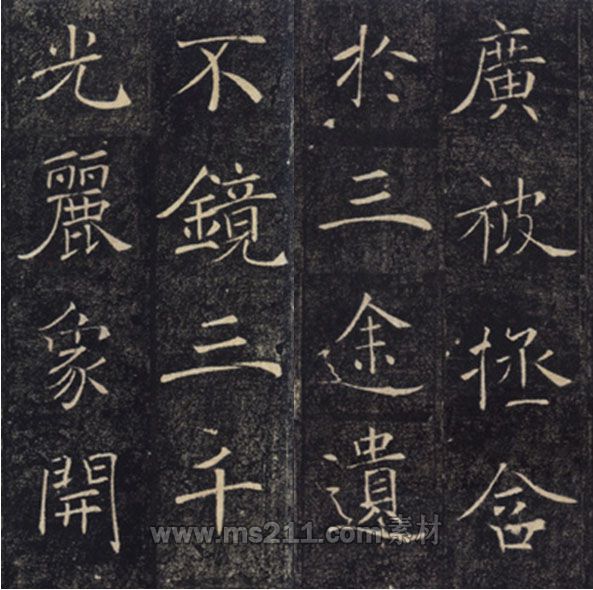 廣被拯含
於三途遺
不鏡三千
光麗象開
www.ms211.com素材